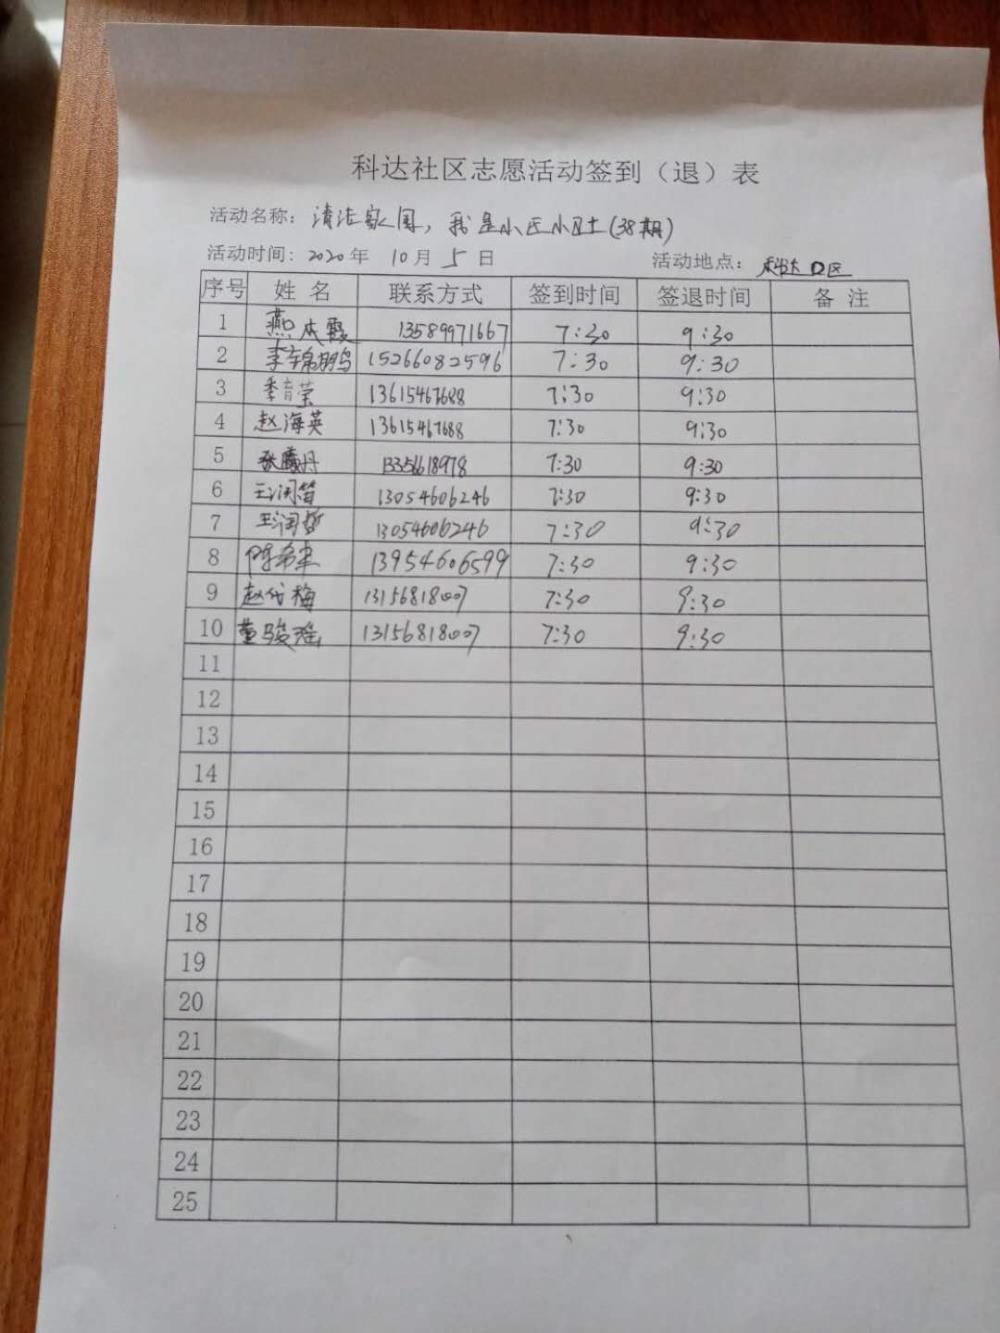 科达社区志愿活动签到（退）表
活动名称：清洁家园，我是小区小卫士(38期)
活动时间：2020年 10月 5日 活动地点：科达 区
序号 姓 名 联系方式 签到时间 签退时间 备 注
1 燕 霞 13589971667 7:30 9:30
2 李锦鹏 15266082596 7:30 9:30
3 季育莹 13615467688 7:30 9:30
4 赵海英 13615467688 7:30 9:30
5 张曦丹 1335618978 7:30 9:30
6 王润笛 13054606246 7:30 9:30
7 王润哲 13054606246 7:30 9:30
8 陈希 13954606599 7:30 9:30
9 赵代梅 13156818007 7:30 9:30
10 董骏瑶 13156818007 7:30 9:30
11
12
13
14
15
16
17
18
19
20
21
22
23
24
25